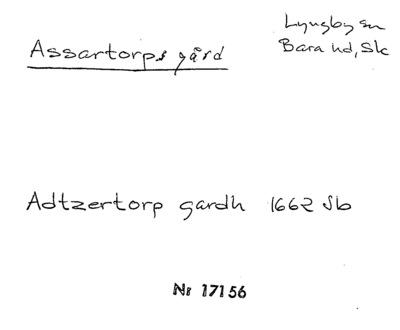 Lyngby sn
Assartorps gård
Bara hd, Sk
Adtzertorp gardh 1662 Jb
Nr 17156